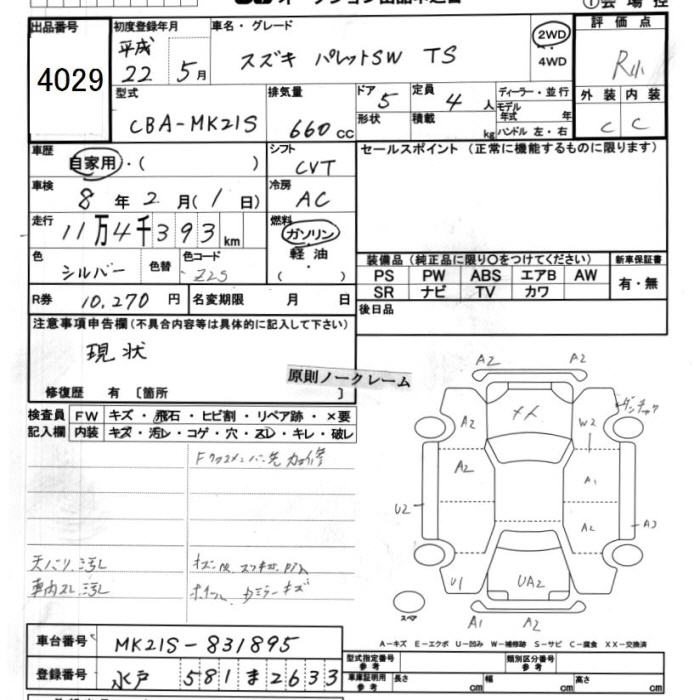 ①会場控
出品番号 4029
初度登録年月 平成 22 5月
車名・グレード スズキ パレットSW TS
2WD
4WD
評価点 R小
外装 内装
C C
型式 CBA-MK21S
排気量 660 cc
ドア 5
定員 4 人
形状
積載 kg
ディーラー・並行
モデル年式 年
ハンドル 左・右
車歴 自家用・( )
シフト CVT
車検 8年2月(1日)
冷房 AC
走行 11万4千393km
燃料 ガソリン
軽油・( )
色 シルバー 色替
色コード Z2S
R券 10,270 円
名変期限 月 日
セールスポイント (正常に機能するものに限ります)
装備品 (純正品に限り○をつけてください)
新車保証書
PS PW ABS エアB AW
有・無
SR ナビ TV カワ
後日品
注意事項申告欄(不具合内容等は具体的に記入して下さい)
現状
原則ノークレーム
修復歴 有 〔箇所 〕
検査員記入欄
FW キズ・飛石・ヒビ割・リペア跡・×要
内装 キズ・汚レ・コゲ・穴・スレ・キレ・破レ
天バリ汚レ
車内スレ汚レ
A2 A2
A2 XX W2
A2 A1
U2 A2 A3
U1 UA2
A1 A2
スペア
A－キズ E－エクボ U－凹み W－補修跡 S－サビ C－腐食 XX－交換済
車台番号 MK21S-831895
登録番号 水戸 581 ま 2633
型式指定番号 参考
類別区分番号 参考
車庫証明用 参考 長さ cm 幅 cm 高さ cm